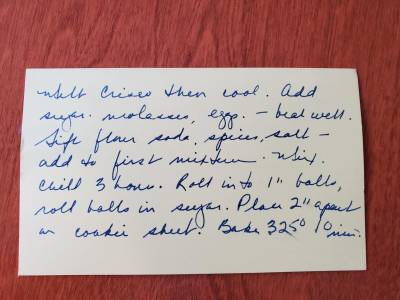 Melt Crisco then cool. Add
sugar, molasses, eggs. - beat well.
Sift flour soda, spices, salt -
add to first mixture. Mix.
Chill 3 hours. Roll into 1" balls,
roll balls in sugar. Place 2" apart
on cookie sheet. Bake 325° 10 min.